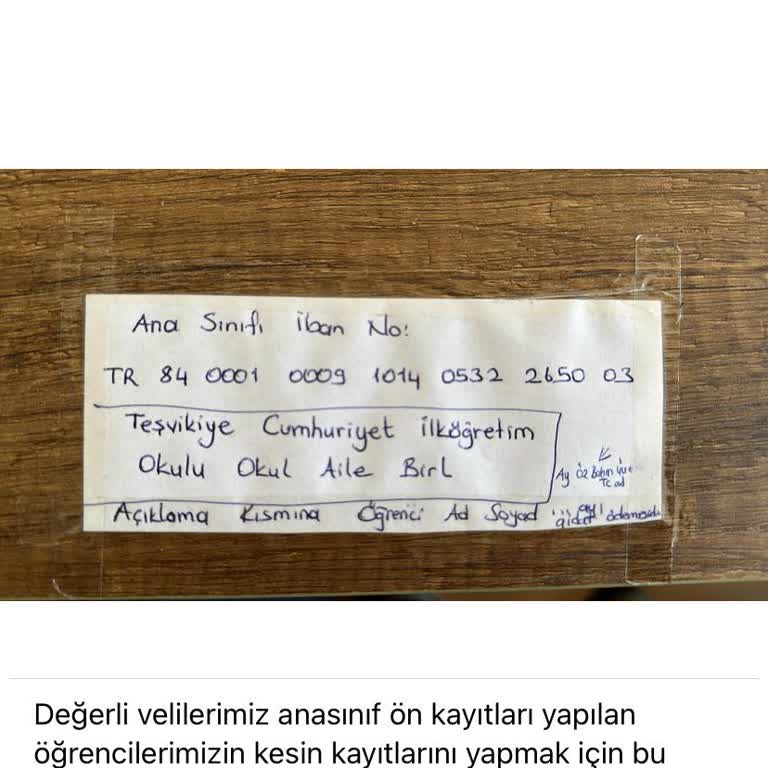 Ana Sınıfı İban No:
TR 84 0001 0009 1014 0532 2650 03
Teşvikiye Cumhuriyet İlköğretim
Okulu Okul Aile Birl
Açıklama Kısmına Öğrenci Ad Soyad
Değerli velilerimiz anasınıf ön kayıtları yapılan
öğrencilerimizin kesin kayıtlarını yapmak için bu